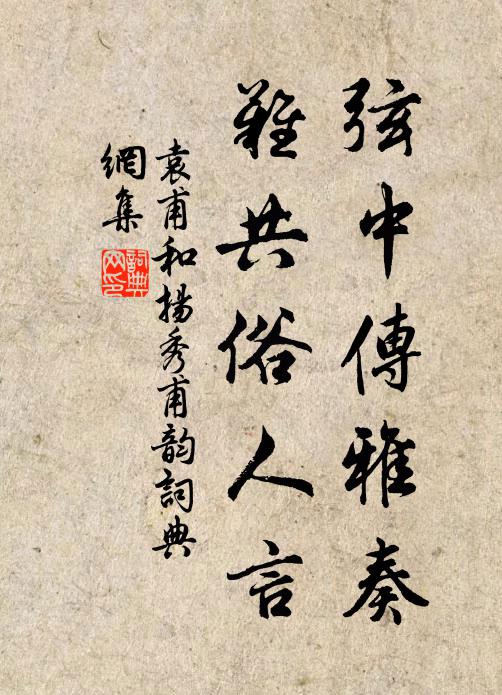 弦中傳雅奏
難共俗人言
袁甫和揚秀甫韵詞典
網集
詞典网印